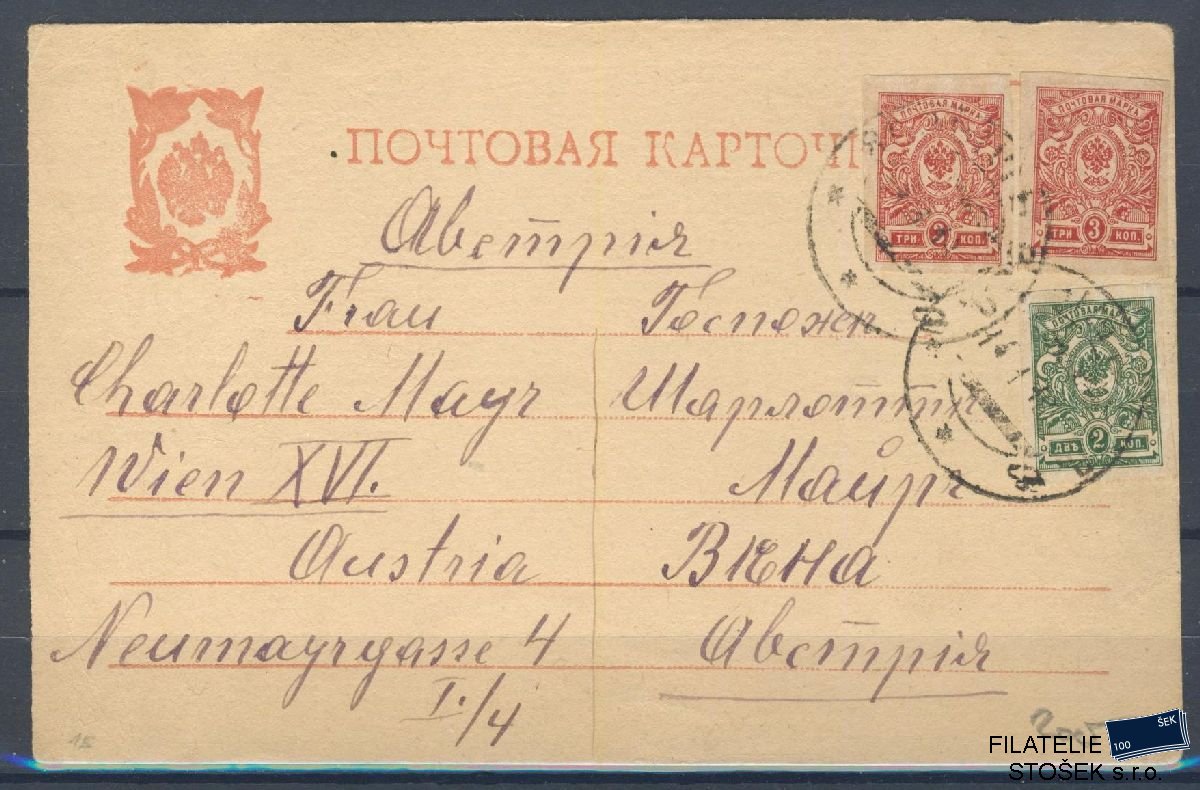 ПОЧТОВАЯ КАРТОЧ
ПОЧТОВАЯ МАРКА
ТРИ 3 КОП.
ПОЧТОВАЯ МАРКА
ТРИ 3 КОП.
ПОЧТОВАЯ МАРКА
ДВѢ 2 КОП.
Австрія
Frau Госпожѣ
Charlotte Mayr Шарлоттѣ
Wien XVI. Майръ
Austria Вѣна
Neumayrgasse 4 Австрія
I./4
15
100 ŠEK
FILATELIE
STOŠEK s.r.o.